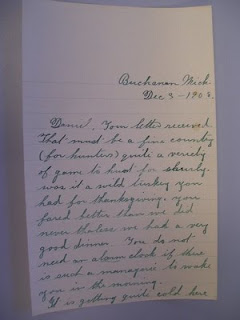 Buchanan Mich.
Dec 3 – 1908.
Daniel. Your letter received
That must be a fine country
(for hunters) quite a variety
of game to hunt for
was it a wild turkey you
had for thanksgiving. you
fared better than we did
never theless we had a very
good dinner. You do not
need an alarm clock if there
is such a menagerie to wake
you in the morning.
It is getting quite cold here